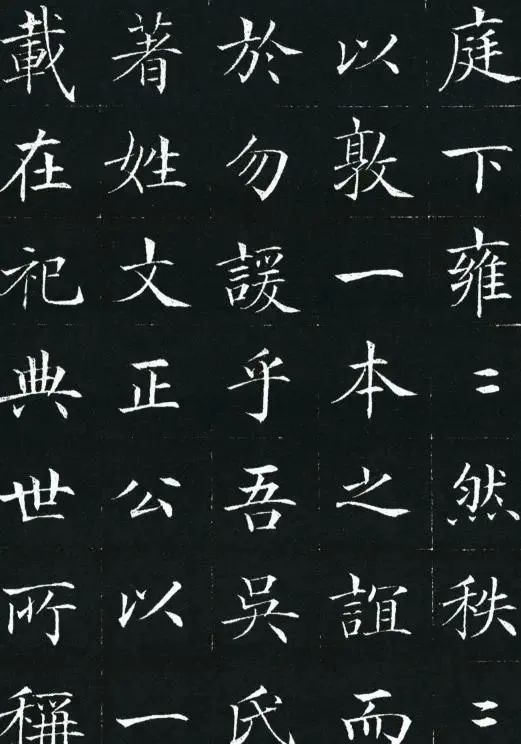 庭下雍〻然秩〻
以敦一本之誼而
於勿諼乎吾吳氏
著姓文正公以一
載在祀典世所稱